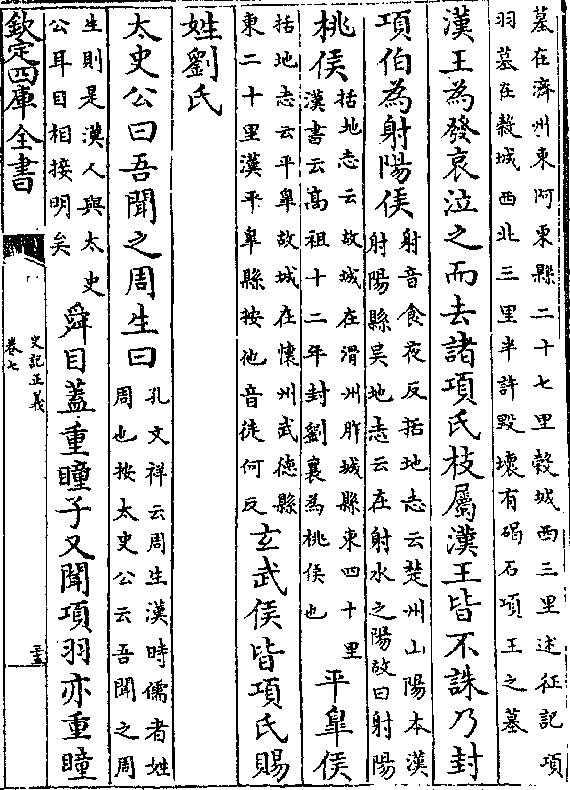 墓在濟州東阿東縣二十七里榖城西三里述征記項
羽墓在榖城西北三里半許毀壞有碣石項王之墓
漢王為發哀泣之而去諸項氏枝屬漢王皆不誅乃封
項伯為射陽侯
射音食夜反括地志云楚州山陽本漢
射陽縣吳地志云在射水之陽故曰射陽
桃侯
括地志云故城在滑州胙城縣東四十里
漢書云高祖十二年封劉襄為桃侯也
平臯侯
括地志云平臯故城在懷州武德縣
東二十里漢平臯縣按他音徒何反
玄武侯皆項氏賜
姓劉氏
太史公曰吾聞之周生曰
孔文祥云周生漢時儒者姓
周也按太史公云吾聞之周
生則是漢人與太史
公耳目相接明矣
舜目蓋重瞳子又聞項羽亦重瞳
欽定四庫全書
史記正義
卷七